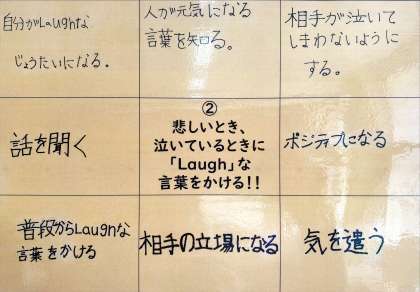 自分がLaughな
じょうたいになる。
人が元気になる
言葉を知る。
相手が泣いて
しまわないように
する。
話を聞く
②
悲しいとき、
泣いているときに
「Laugh」な
言葉をかける!!
ポジティブになる
普段からLaughな
言葉をかける
相手の立場になる
気を遣う